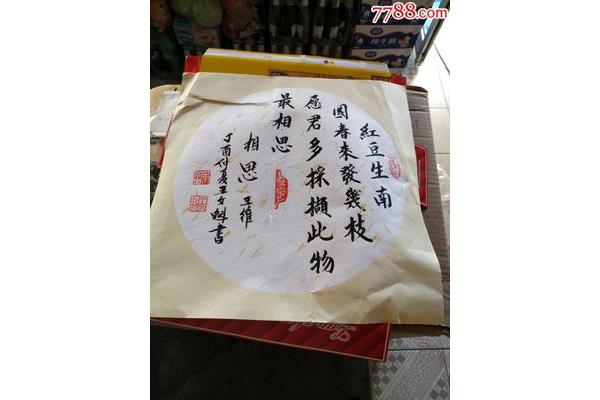 7788.com
紅豆生南
國春來發幾枝
愿君多採擷此物
最相思
相思 王維
丁酉仲夏王文魁書
純牛奶